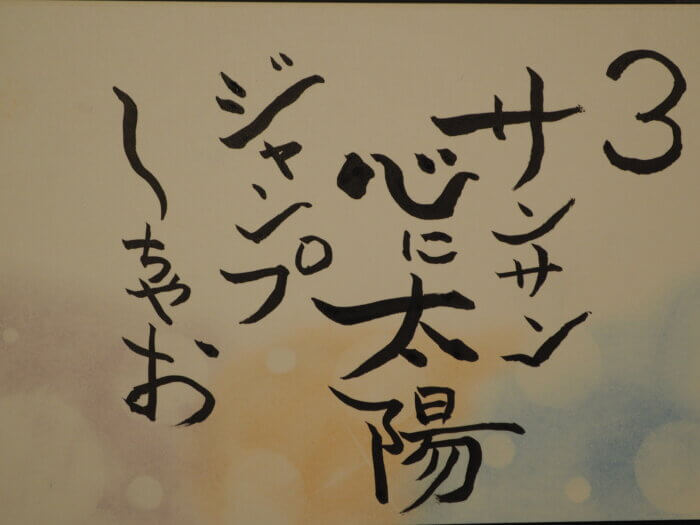 3
サンサン
心に太陽
ジャンプ
しちゃお